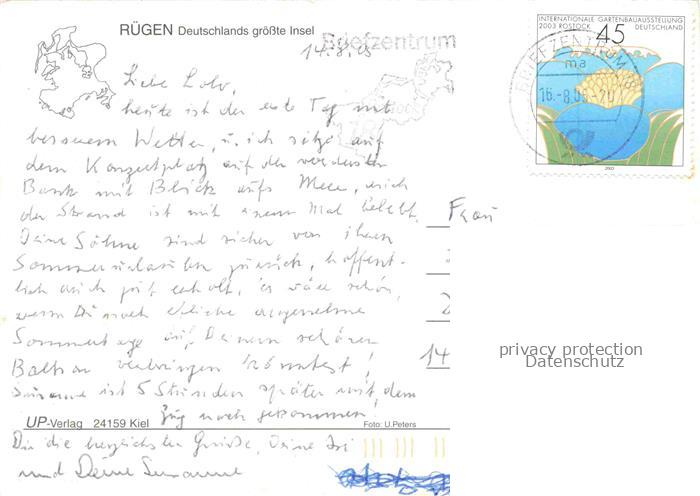 RÜGEN Deutschlands größte Insel
Briefzentrum
14.8.05
INTERNATIONALE GARTENBAUAUSSTELLUNG
2003 ROSTOCK 45 DEUTSCHLAND
BRIEFZENTRUM
16.-8.05
2003
Liebe Lolo,
heute ist der erste Tag mit
besserem Wetter, u. ich sitze auf
dem Konzertplatz auf der vordersten
Bank mit Blick aufs Meer, auch
der Strand ist mit einem Mal belebt.
Frau
Deine Söhne sind sicher von ihren
Sommerurlauben zurück, hoffent-
lich auch gut erholt, es wäre schön,
wenn Du noch etliche angenehme
Sommertage auf Deinem schönen
14
Balkon verbringen könntest!
Susanne ist 5 Stunden später mit dem
Zug nach gekommen!
privacy protection
Datenschutz
UP-Verlag 24159 Kiel
Foto: U.Peters
Dir die herzlichsten Grüße, Deine
und Deine Susanne